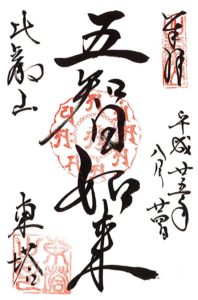 奉拝
平成廿五年
八月廿四日
五智如来
比叡山 東塔